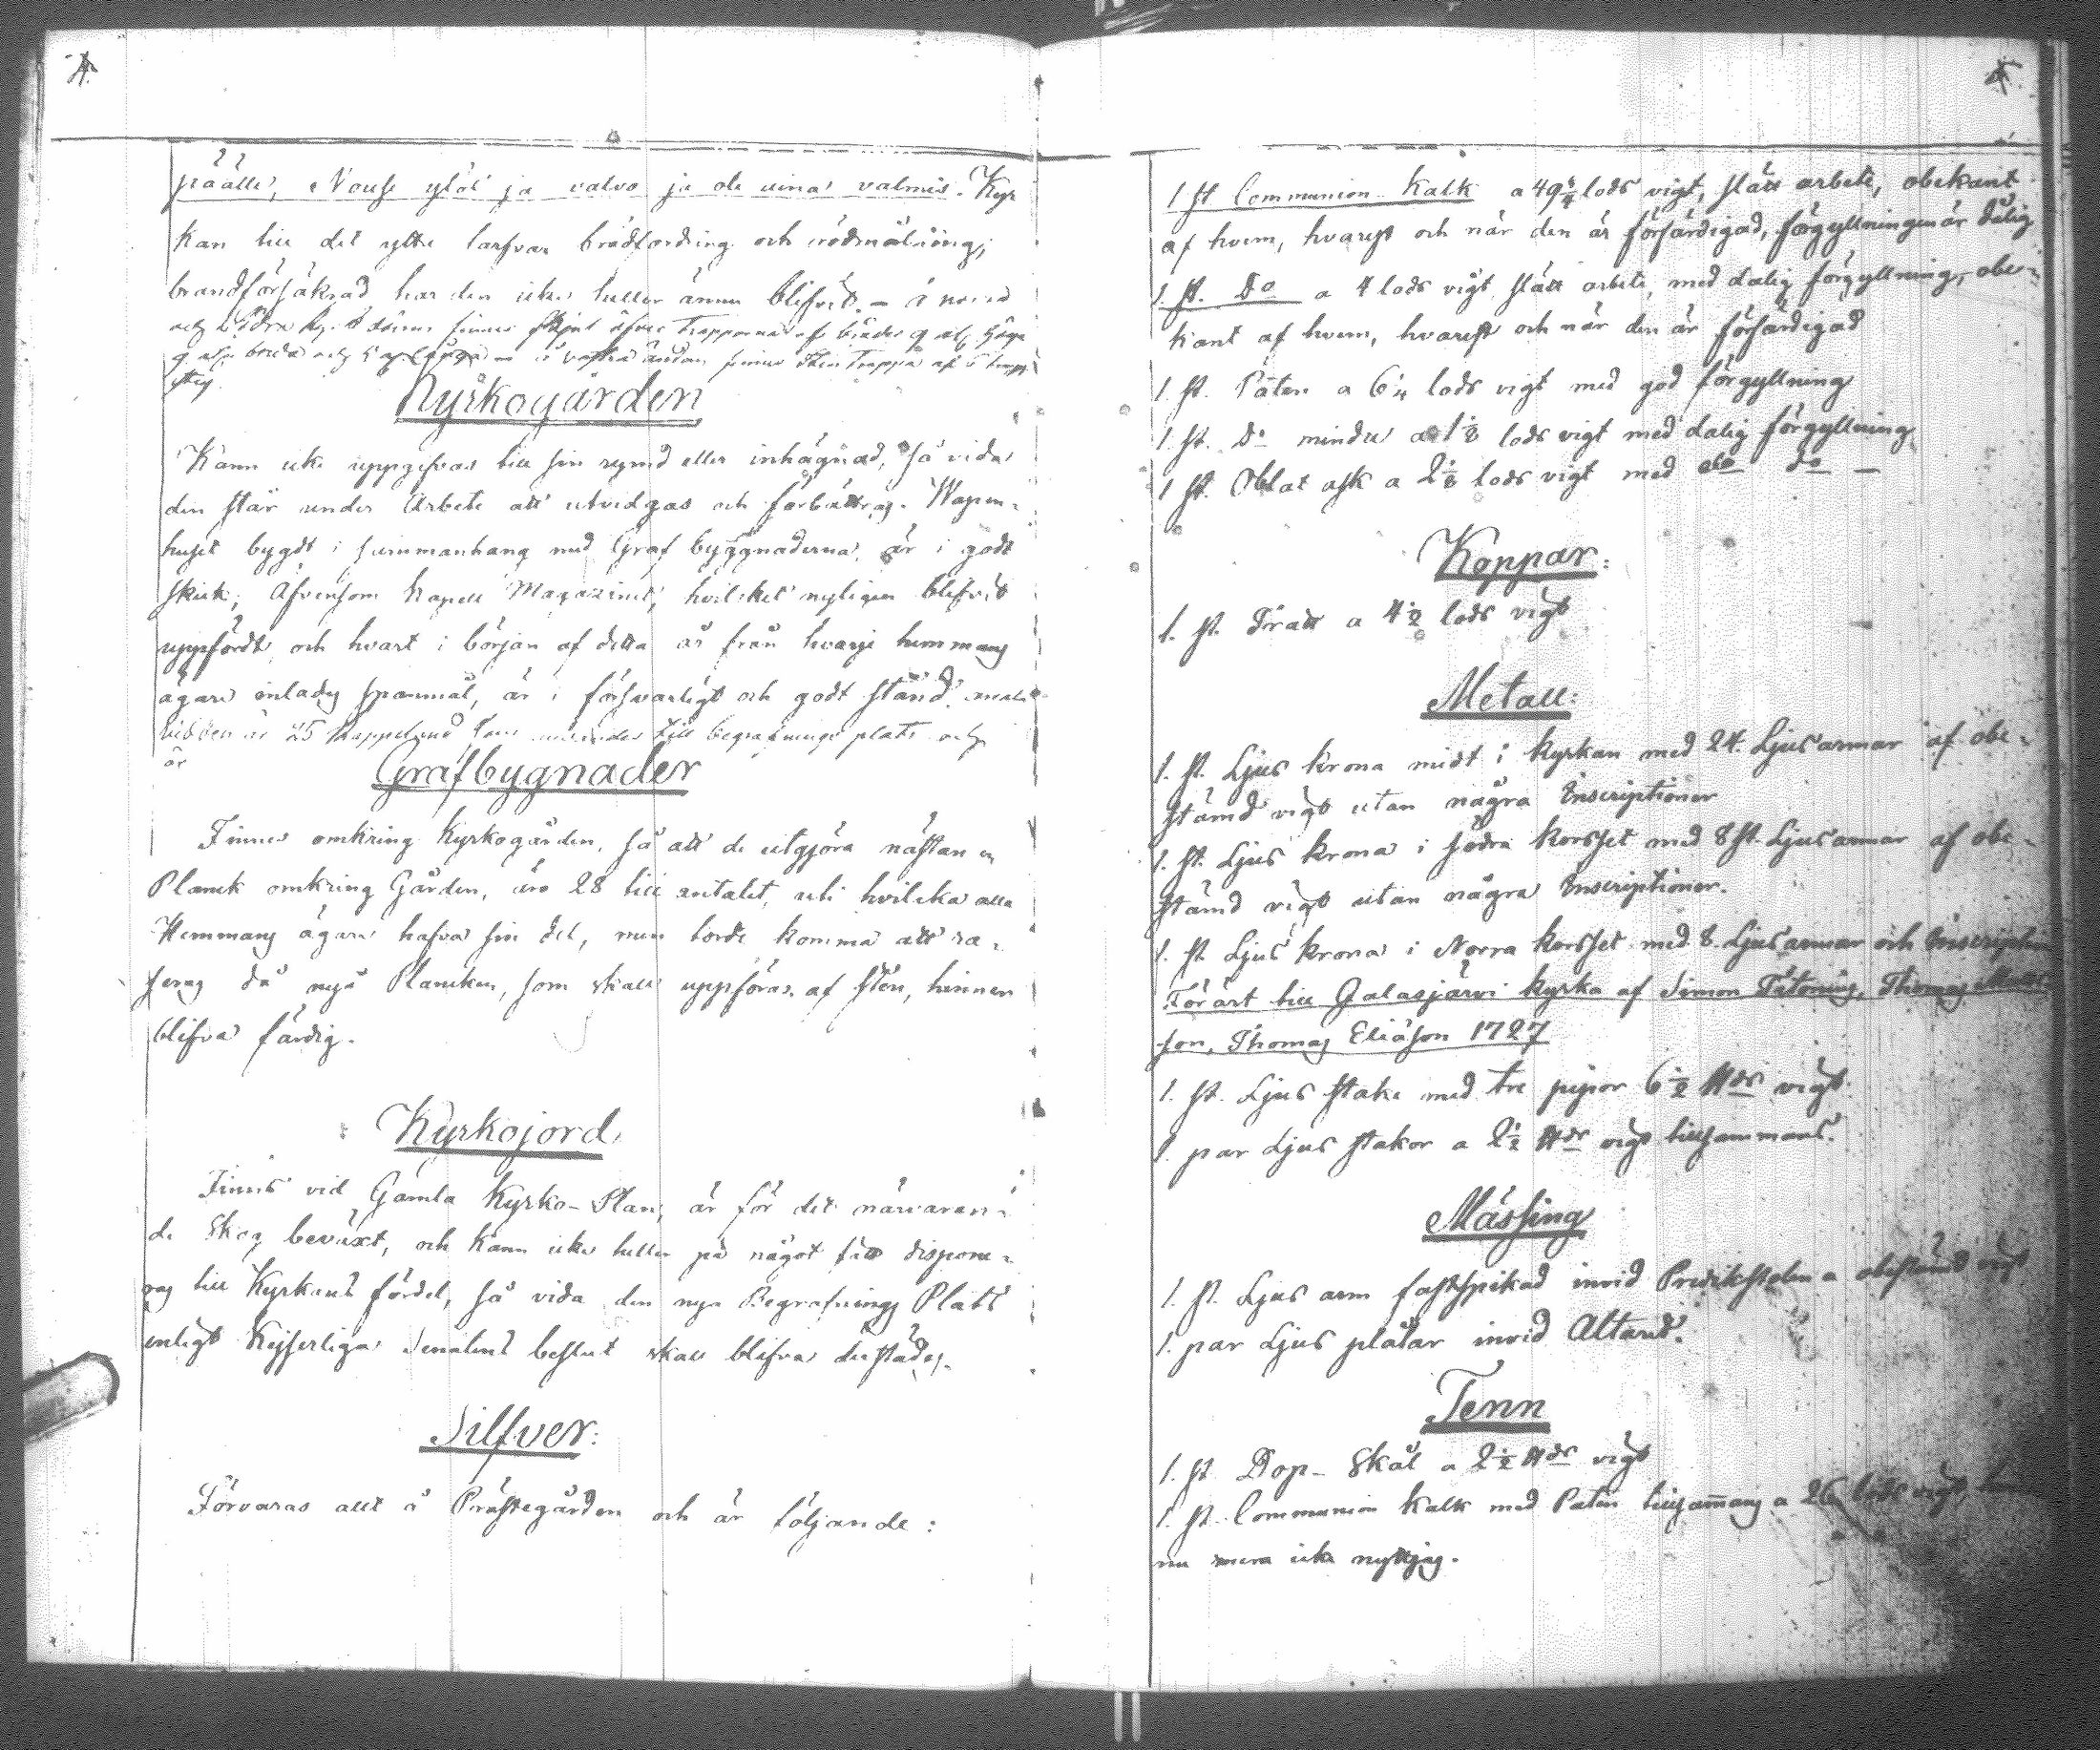 päälle, Nouse ylös ja valvo ja ole aina valmis. Kyr
kan till det yttre tarfvar brädfordring och rödmålning,
brandförsäkrad har den icke heller ännu blifvit. – å norra
och Södra dörrar finnes Skjul öfver Trapporna af bräder 9 aln höga
9 aln breda och – å vestra ändan finnes Sten Trappa af 6 trapp
steg.
Kyrkogården
Kann icke uppgifvas till sin rymd eller inhägnad, så vida
den står under Arbete att utvidgas och förbättras. Wapen-
huset bygdt i summanhang med Graf byggnaderna är i godt
skick; Äfvensom Kapell Magazinet, hvilcket nyligen blifvit
uppfördt och hvart i början af detta år från hvarje hemmans
ägare inlades spannmål, är i försvarligt och godt stånd.
vidden är 25 Kappeland som användes till begrafnings plats och
är
Grafbygnader
Finnes omkring Kyrkogården, så att de utgjöra nästan en
Planck omkring Gården, äro 28 till antalet, uti hvilcka alla
Hemmans ägare hafva sin del, men torde komma att ra-
seras då nya Plancken, som skall uppföras af sten, hinner
blifva färdig.
Kyrkojord
Finnes vid Gamla Kyrko-Plan, är för det närvaran-
de Skog beväxt, och kann icke heller på något sätt dispone-
ras till Kyrkans fördel, så vida den nya Begrafnings Plats
enligt Kejserliga Senatens beslut skall blifva derstädes.
Silfver:
Förvaras allt å Prästegården och är följande:
1 st Communion Kalk a 49¼ lods vigt, slätt arbete, obekant
af hvem, hvarest och när den är förfärdigad, förgyllningen är dålig
1. st. Do a 4 lods vigt slätt arbete, med dålig förgyllning, obe-
kant af hvem, hvarest och när den är förfärdigad
1 st. Paten a 6¼ lods vigt med god förgyllning
1 st. Do mindre a 1½ lods vigt med dalig förgyllning
1 st. Oblat ask a 2½ lods vigt med do –
Koppar:
1. st. Tratt a 4½ lods vigt
Metall:
1. st. Ljus krona midt i kyrkan med 24. Ljusarmar af obe-
stämd vigt utan några Inscriptioner
1. st. Ljus krona i södra korsset med 8 st. Ljusarmar af obe-
stämd vigt utan några Inscriptioner.
1. st. Ljus krona i Norra korsset med 8. Ljusarmar och Inscription
Förärt till Jalasjärvi kyrka af Simon Thomas Matts
son, Thomas Eliäson 1727
1. st. Ljus stake med tre pipor 6½ ℔dr vigt.
1. par Ljus stakar a 2½ ℔dr vigt tillsammans.
Mässing
1. st. Ljus arm fastspikad invid Predikstolen a obestämd vigt
1. par Ljus plåtar invid Altaret.
Tenn
1. st Dop-Skål a 2½ ℔dr vigt
1. st. Communion kalk med Paten tillsammans a 26 lods vigt,
nu mera icke nyttjas.